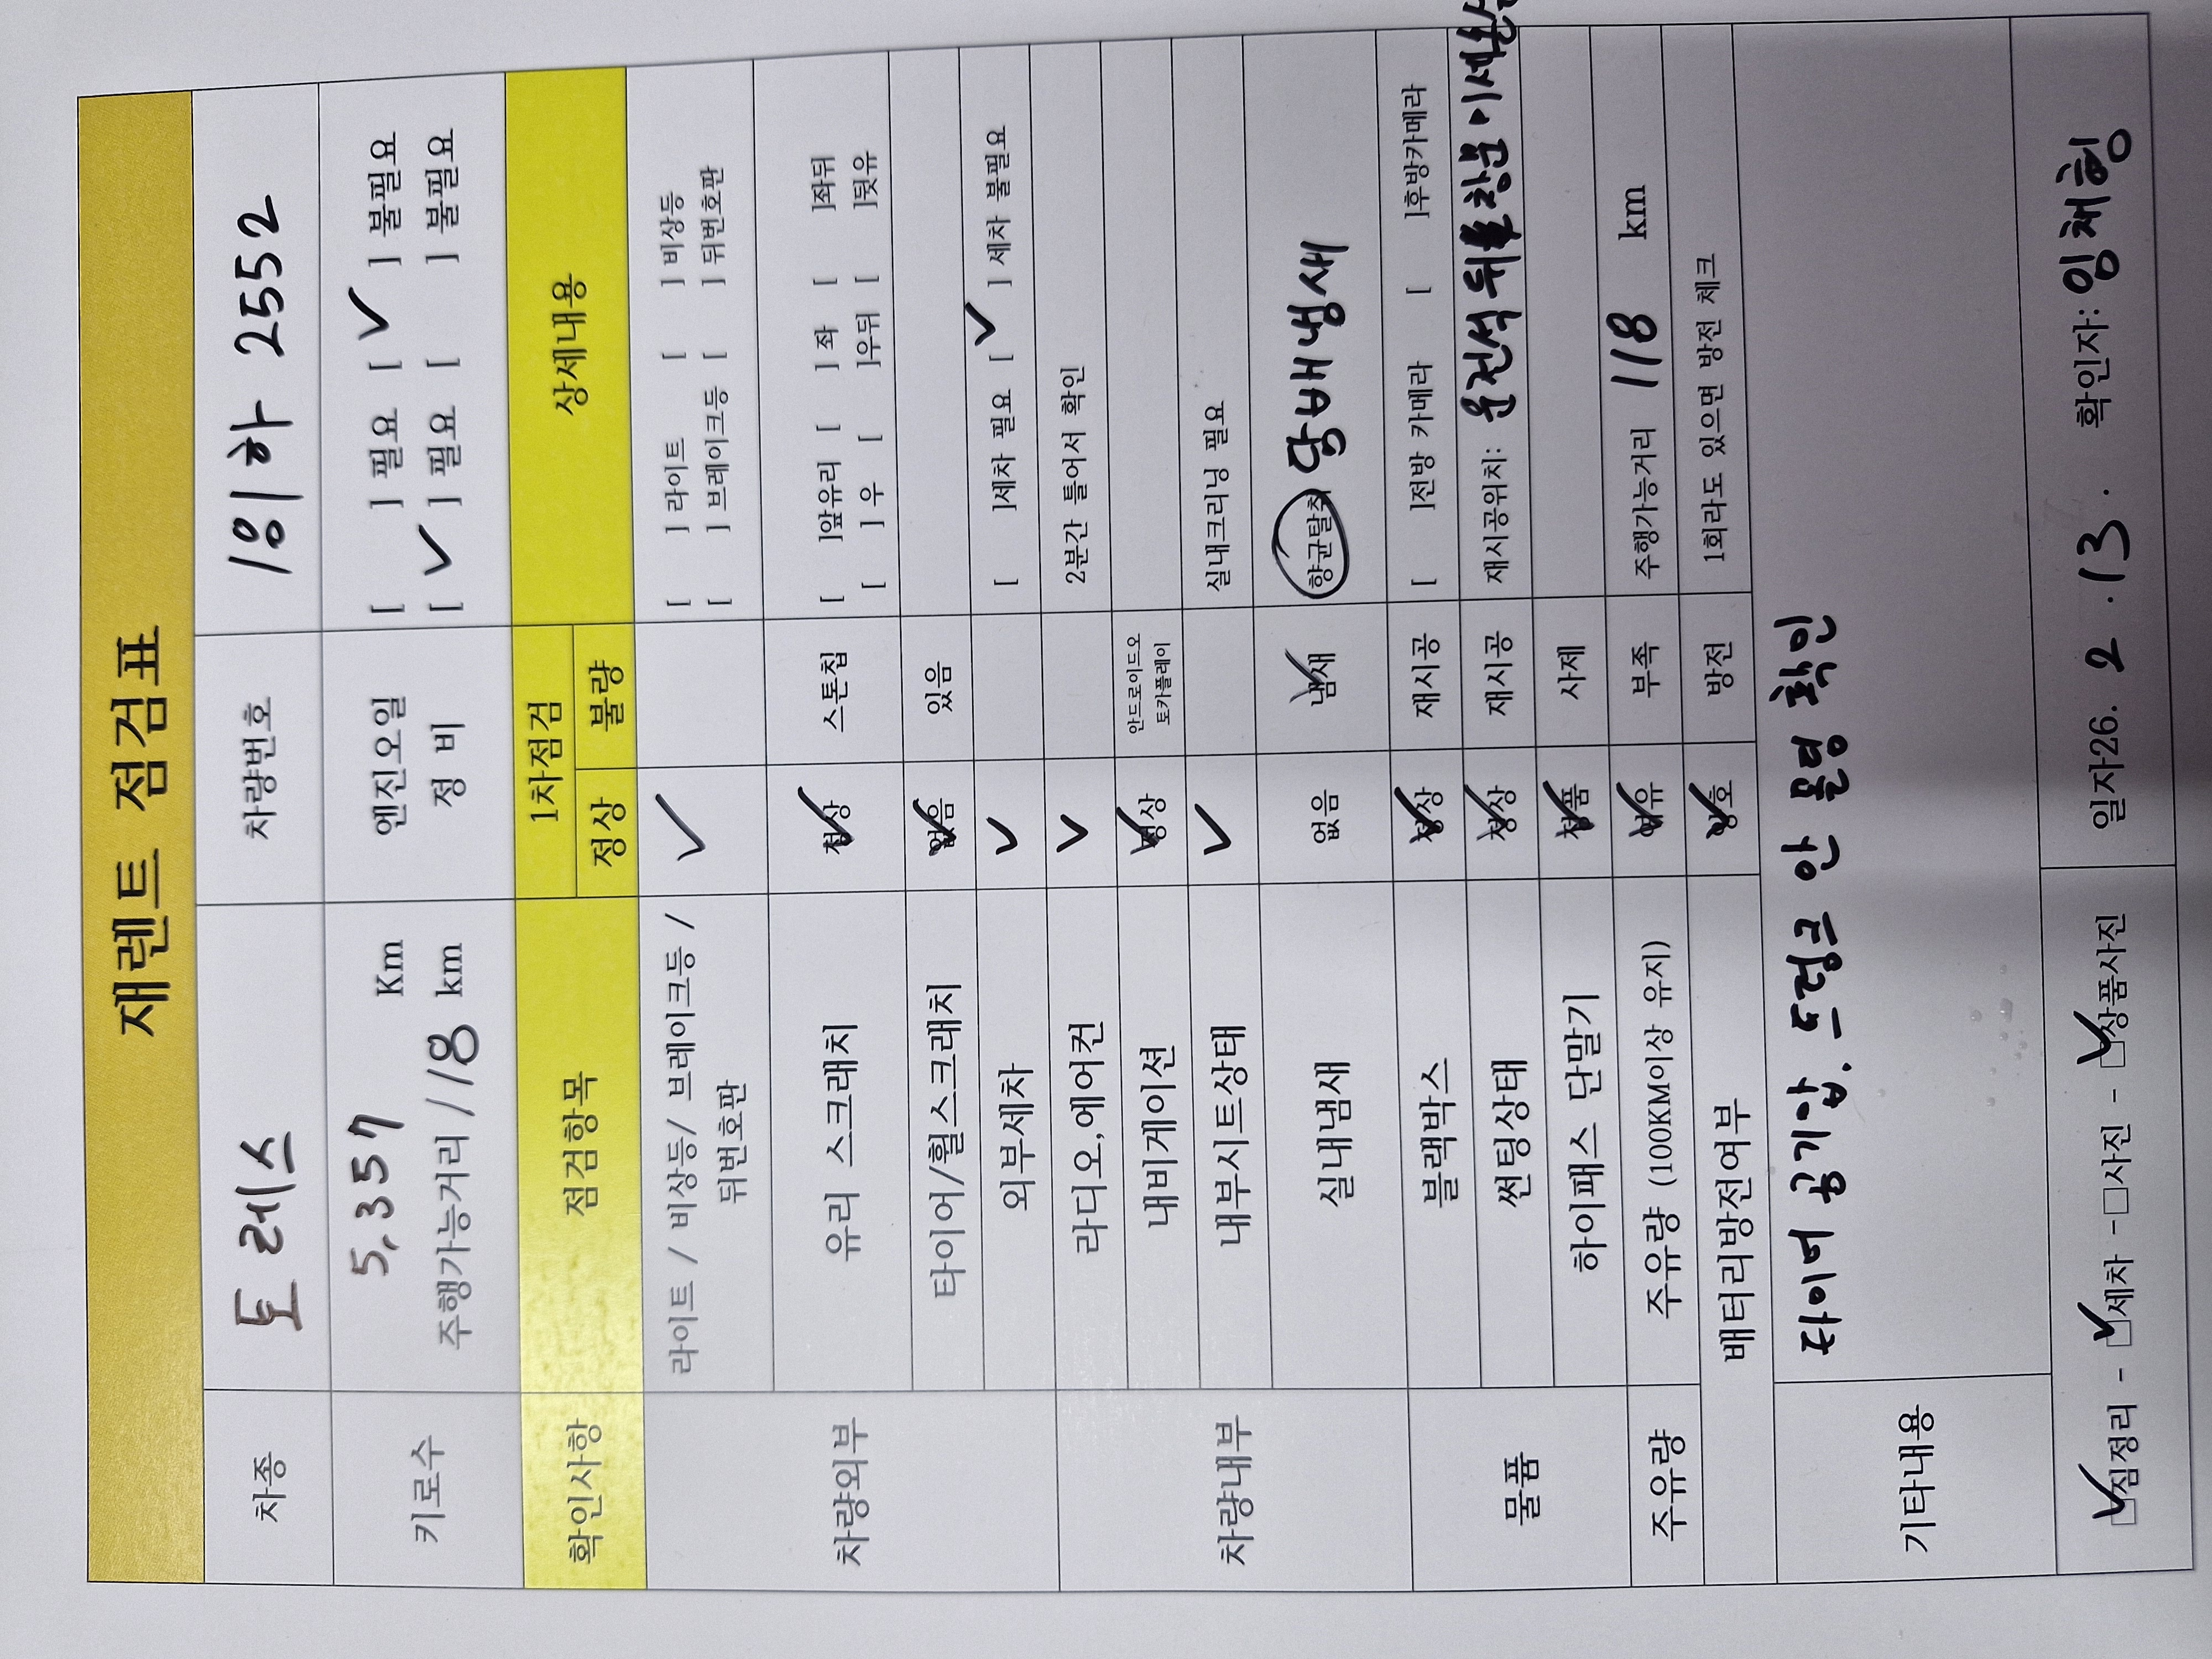 재렌트 점검표
차종 토레스 차량번호 181하 2552
키로수 5,357 Km 엔진오일 [ ] 필요 [ ✓ ] 불필요
주행가능거리 118 km 정 비 [ ✓ ] 필요 [ ] 불필요
확인사항 점검항목 1차점검 상세내용
정상 불량
차량외부 라이트 / 비상등/ 브레이크등 / 뒤번호판 ✓ [ ] 라이트 [ ] 비상등
[ ] 브레이크등 [ ] 뒤번호판
유리 스크래치 정상 ✓ 스톤칩 [ ]앞유리 [ ] 좌 [ ]좌뒤
[ ] 우 [ ]우뒤 [ ]뒷유
타이어/휠스크래치 없음 ✓ 있음
외부세차 ✓ [ ]세차 필요 [ ✓ ] 세차 불필요
차량내부 라디오,에어컨 ✓ 2분간 틀어서 확인
내비게이션 정상 ✓ 안드로이드오
토카플레이
내부시트상태 ✓ 실내크리닝 필요
실내냄새 없음 냄새 ✓ 향균탈취 담배냄새
물품 블랙박스 정상 ✓ 재시공 [ ]전방 카메라 [ ]후방카메라
썬팅상태 정상 ✓ 재시공 재시공위치: 운전석 뒤 창문 미세
하이패스 단말기 정품 ✓ 사제
주유량 주유량 (100KM이상 유지) 여유 ✓ 부족 주행가능거리 118 km
배터리방전여부 양호 ✓ 방전 1회라도 있으면 방전 체크
기타내용 타이어 공기압. 트렁크 안 물병 확인
☑짐정리 - ☑세차 -□사진 - ☑상품사진 일자26. 2 . 13 . 확인자: 임채형